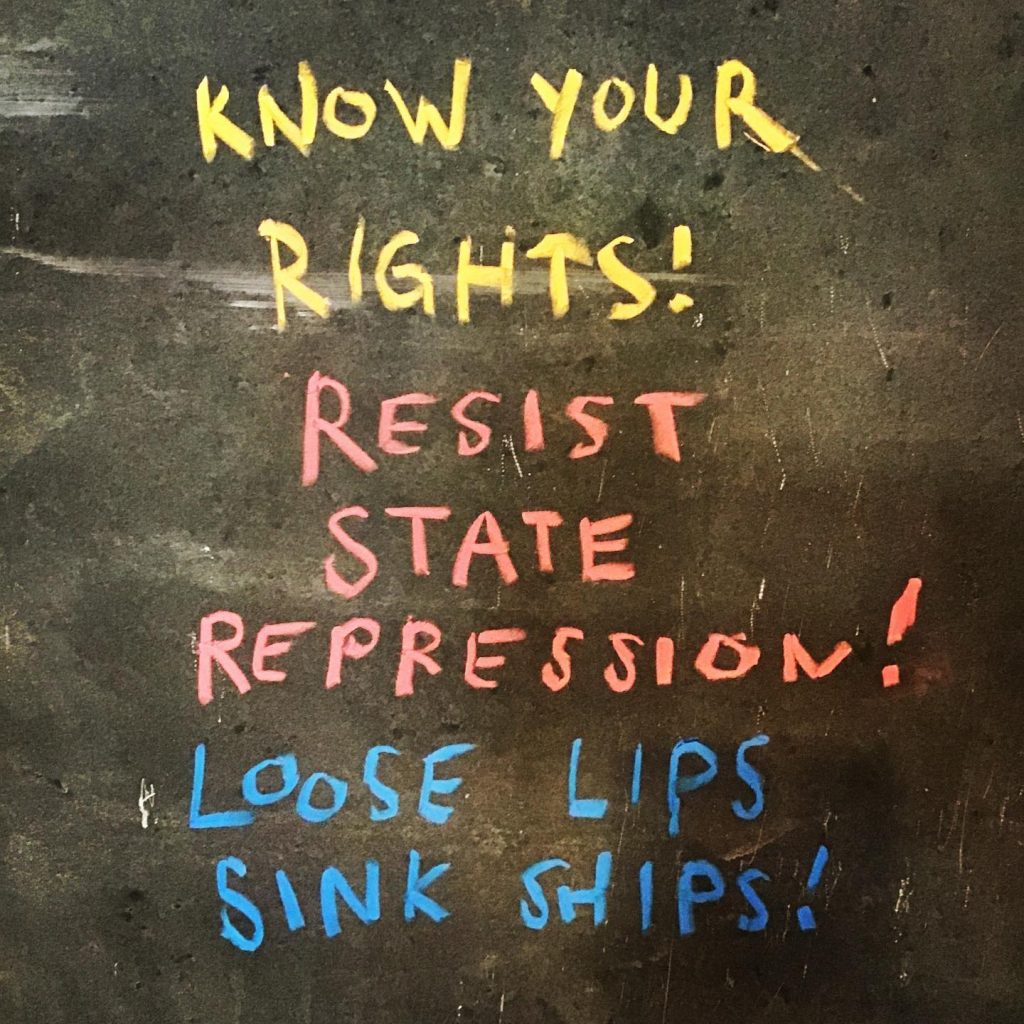 KNOW YOUR
RIGHTS!
RESIST
STATE
REPRESSION!
LOOSE LIPS
SINK SHIPS!